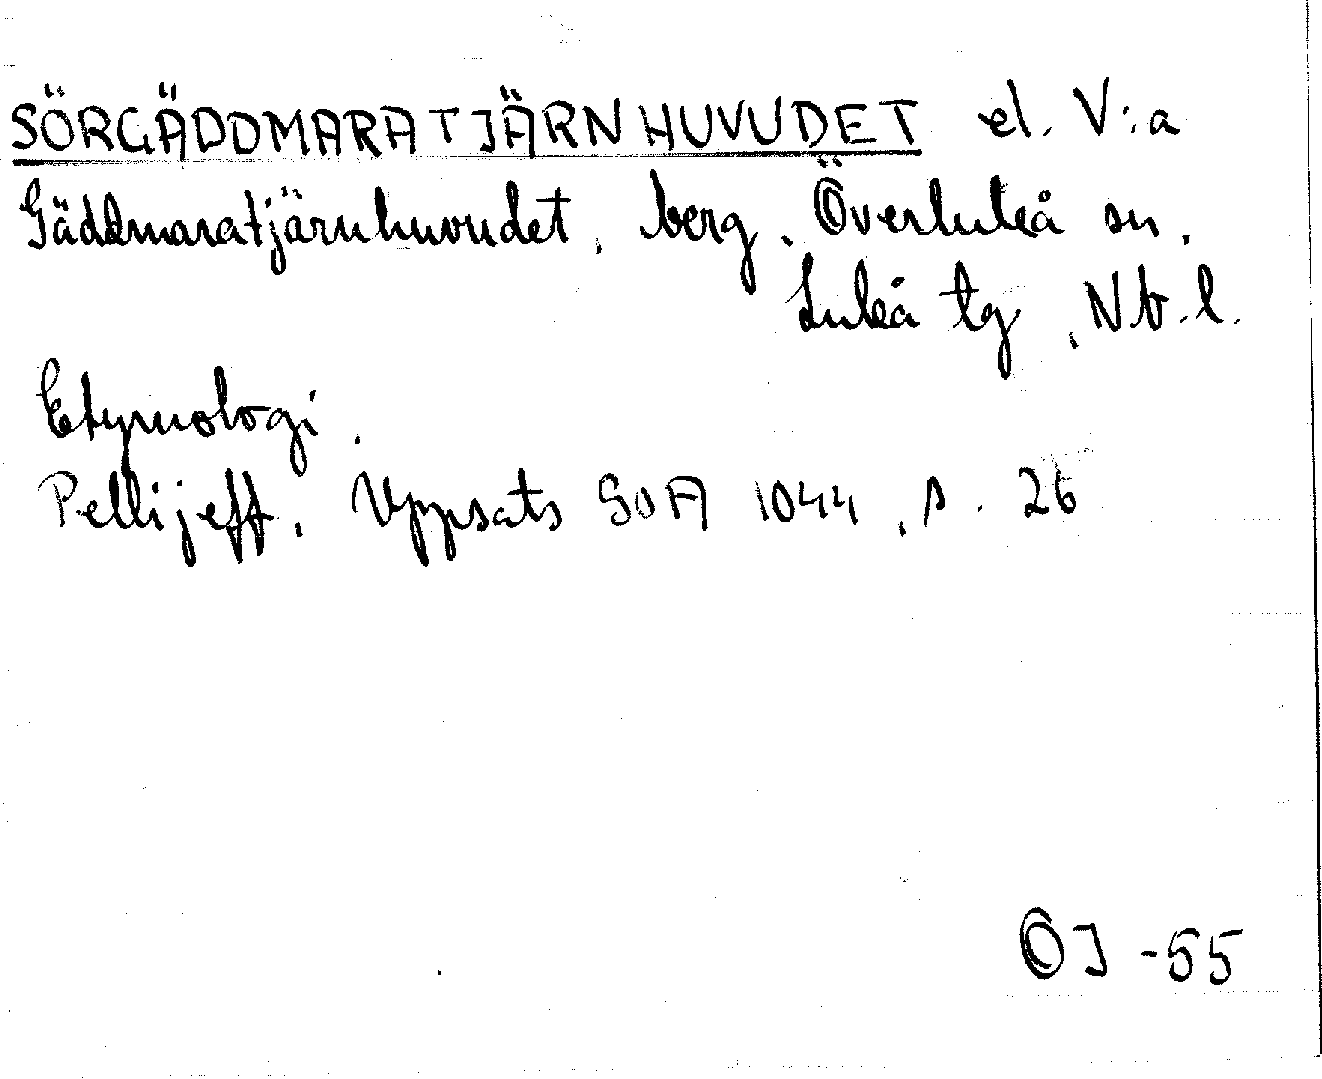 SÖRGÄDDMARATJÄRNHUVUDET el. V:a
Gäddmaratjärnhuvudet, berg, Överluleå sn,
Luleå tg, Nb.l.
Etymologi.
Pellijeff, Uppsats SOFA 1044, s. 26
OJ -55